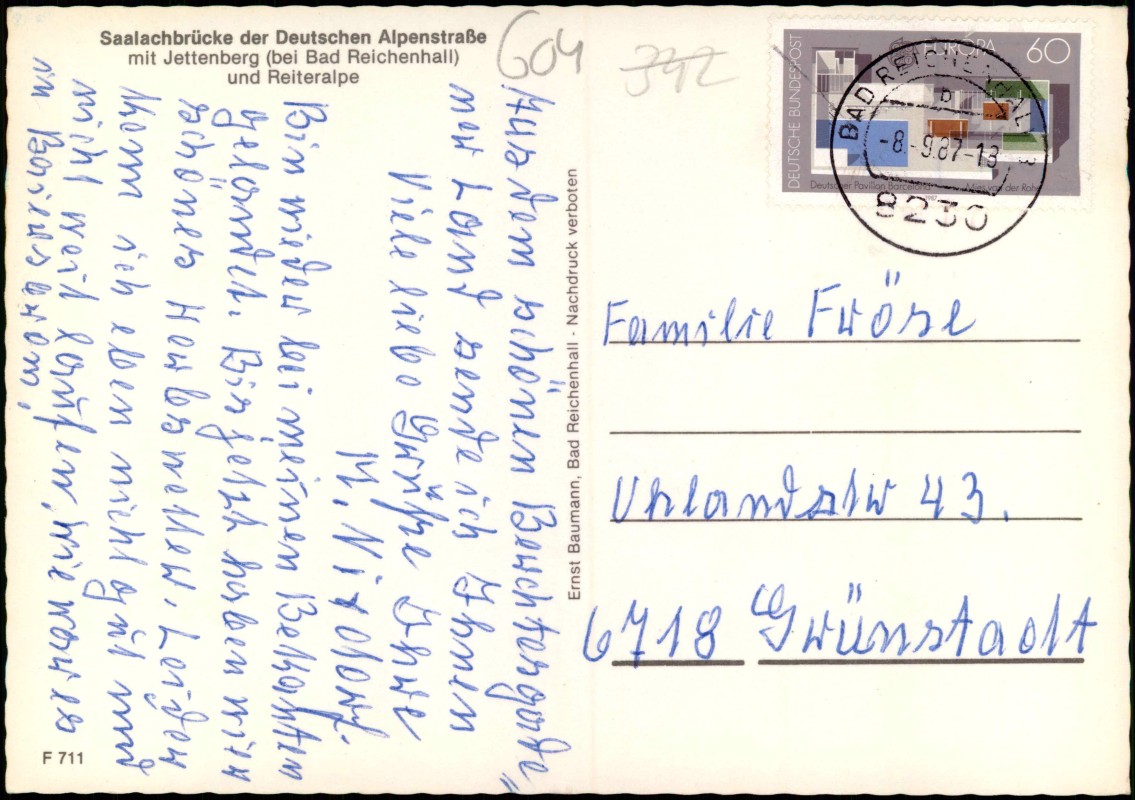 Saalachbrücke der Deutschen Alpenstraße
mit Jettenberg (bei Bad Reichenhall)
und Reiteralpe
604
342
DEUTSCHE BUNDESPOST
EUROPA
60
Deutscher Pavillon Barcelona
Mies van der Rohe
BAD REICHENHALL 3
b
-8.-9.87-13
8230
Aus dem schönen Berchtesgade„
ner Land sende ich Ihnen
Viele liebe Grüße Ihre
M. Nixdorf.
Bin wieder bei meinen Bekannten
gelandet. Bis jetzt haben wir
schönes Herbswetter. Leider
kann ich eben nicht gut und
nicht weit laufen, wie war es
in
Ernst Baumann, Bad Reichenhall · Nachdruck verboten
Familie Fröse
Uhlandstr 43.
6718 Grünstadt
F 711